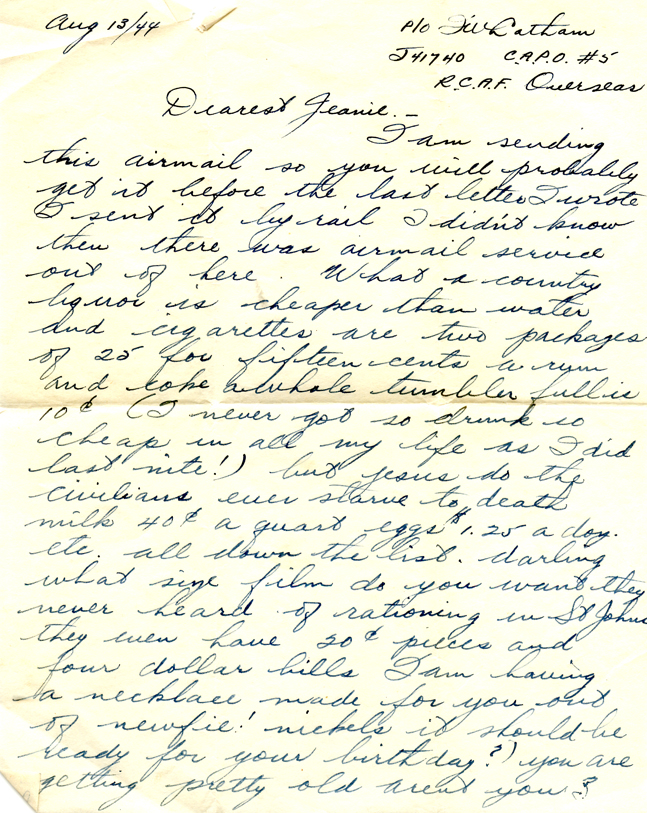 Aug 13/44
P/O Latham
J41740 C.A.P.O. #5
R.C.A.F. Overseas
Dearest Jeanie. —
I am sending
this airmail so you will probably
get it before the last letter I wrote
I sent it by rail I didn't know
then there was airmail service
out of here. What a country
liquor is cheaper than water
and cigarettes are two packages
of 25 for fifteen cents a rum
and coke a whole tumbler full is
10¢ (I never got so drunk so
cheap in all my life as I did
last nite!) but jesus do the
civilians ever starve to death
milk 40¢ a quart eggs $1.25 a doz.
etc. all down the list. darling
what size film do you want they
never heard of rationing in St Johns
they even have 20¢ pieces and
four dollar bills I am having
a necklace made for you out
of newfie! nickels it should be
ready for your birthday?) you are
getting pretty old arent you?